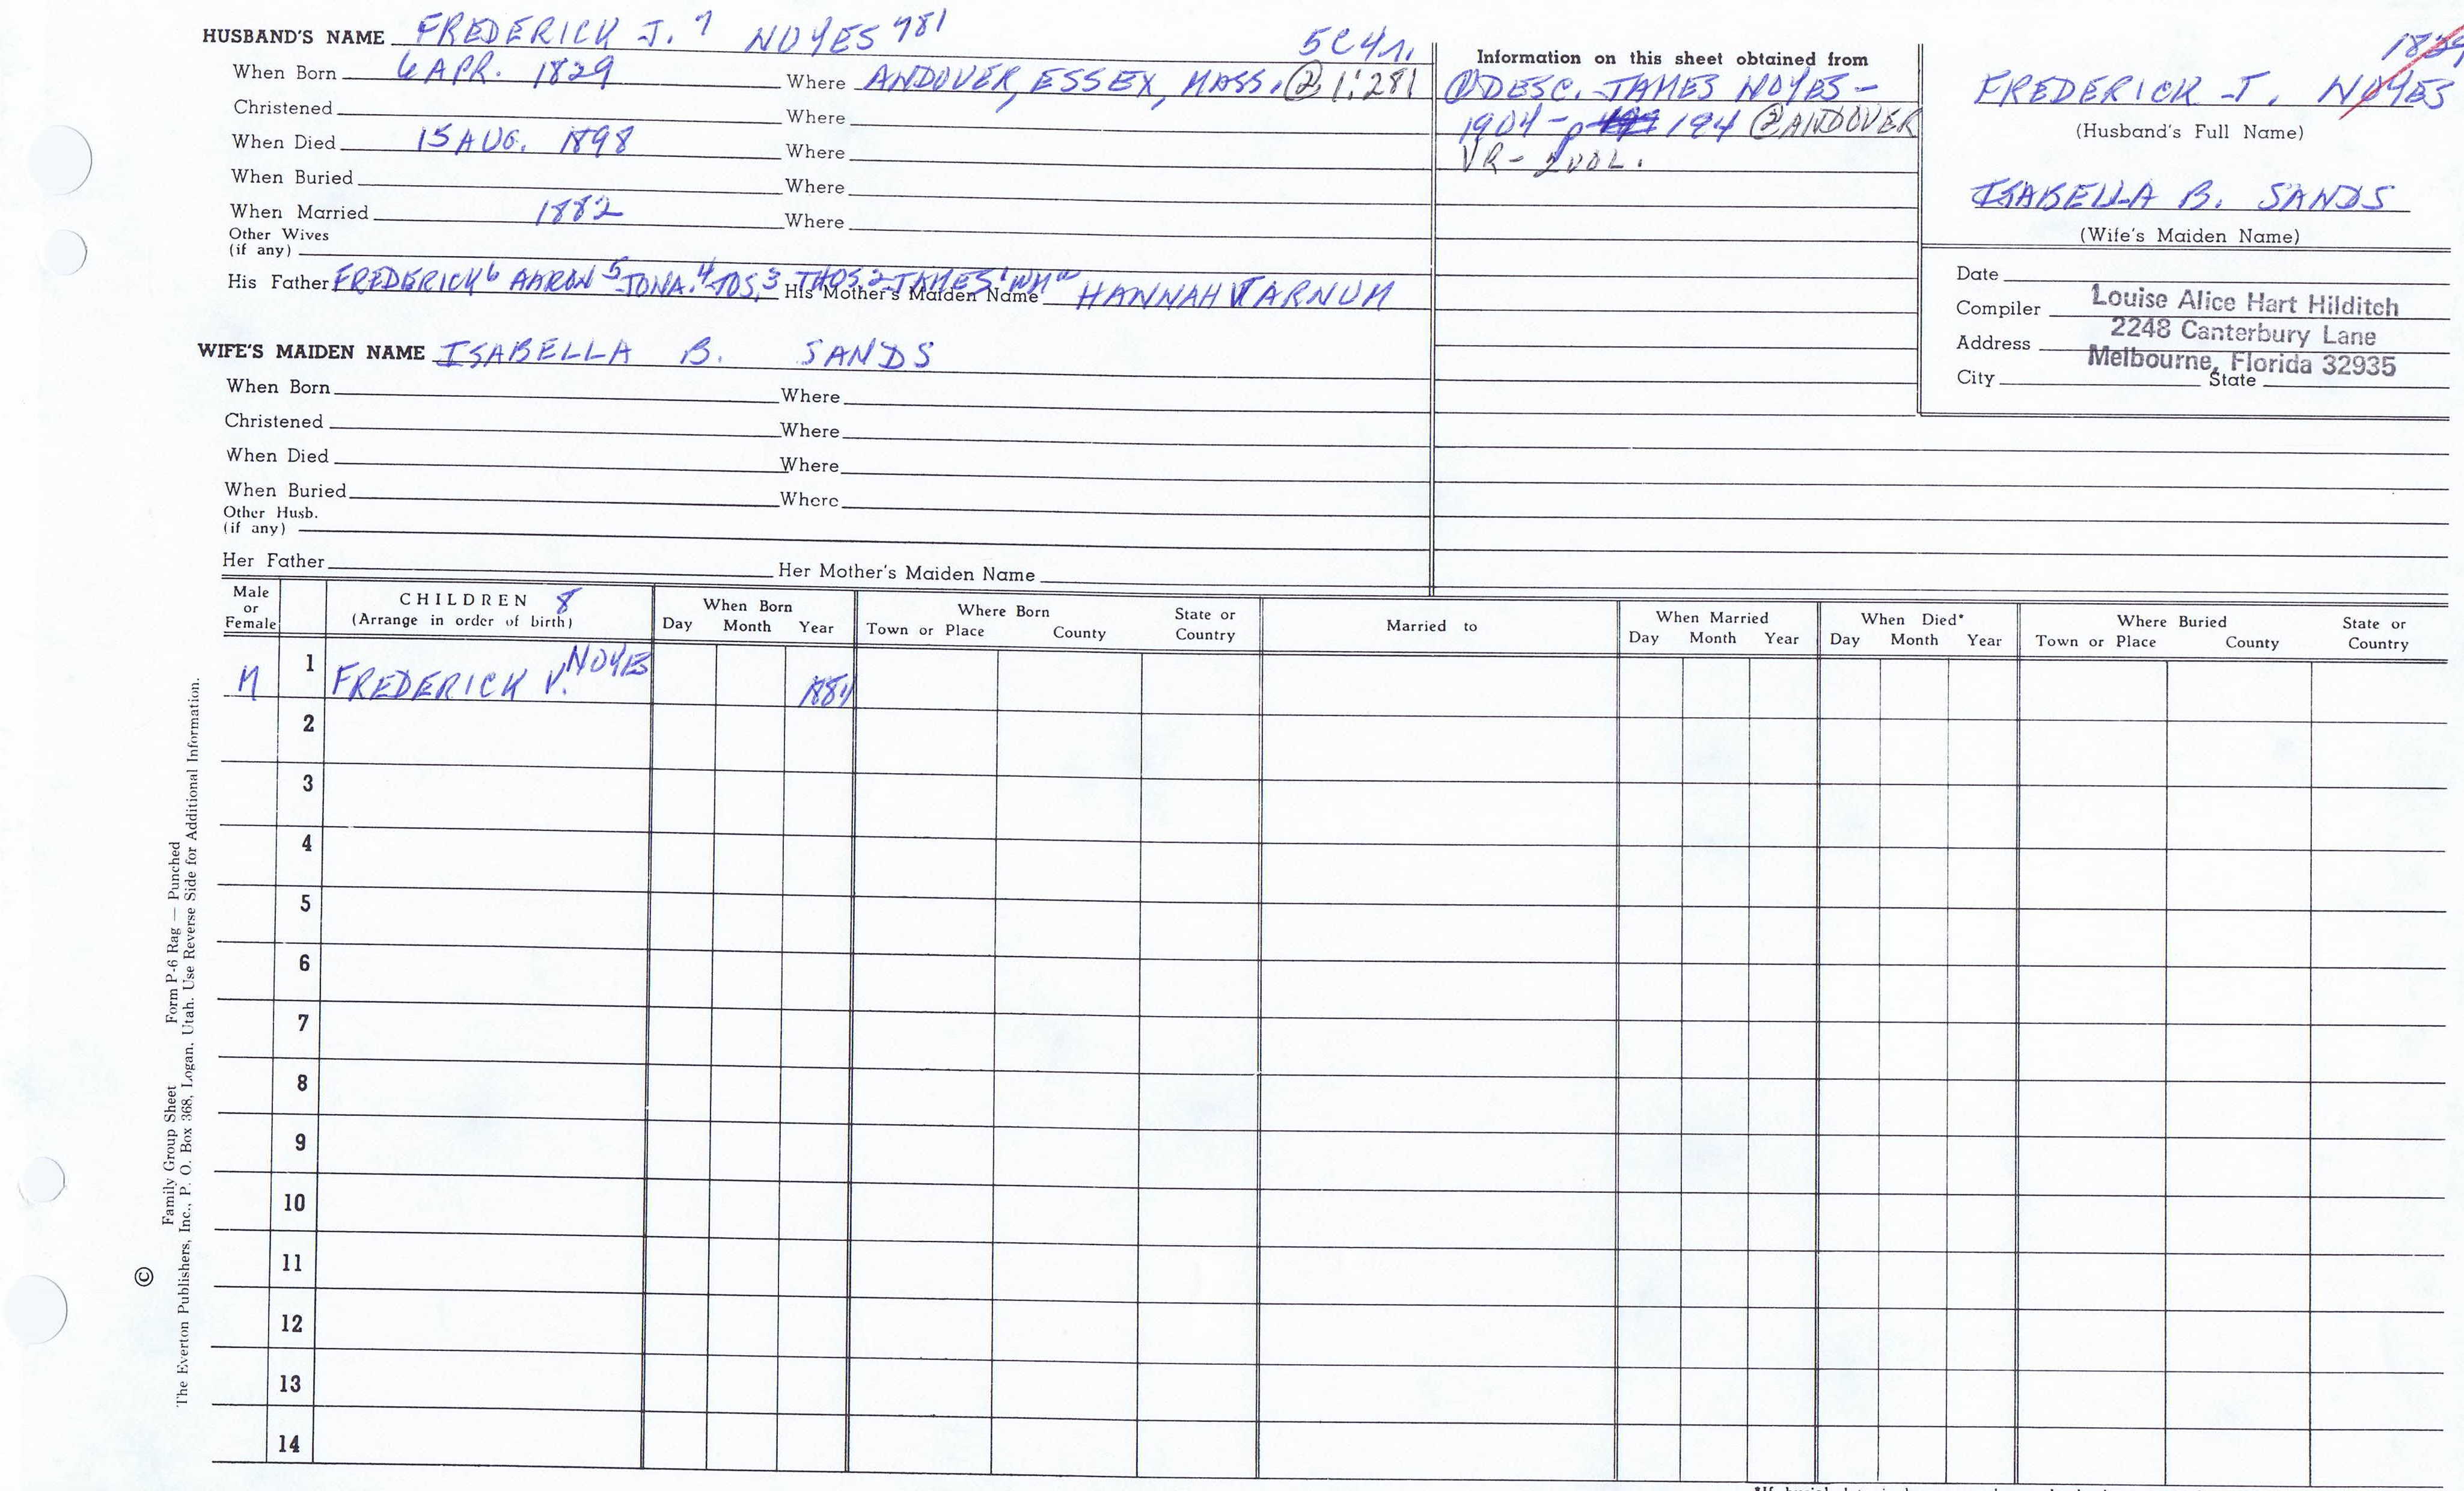 HUSBAND'S NAME FREDERICK J. 7 NOYES 781 5C4r.
When Born 6 APR. 1829 Where ANDOVER, ESSEX, MASS. ② 1:281
Christened Where
When Died 15 AUG. 1898 Where
When Buried Where
When Married 1882 Where
Other Wives
(if any)
His Father FREDERICK 6 AARON 5 JONA. 4 JOS. 3 THOS. 2 JAMES 1 WM His Mother's Maiden Name HANNAH VARNUM
WIFE'S MAIDEN NAME ISABELLA B. SANDS
When Born Where
Christened Where
When Died Where
When Buried Where
Other Husb.
(if any)
Her Father Her Mother's Maiden Name
Information on this sheet obtained from
① DESC. JAMES NOYES -
1904 - p 194 ② ANDOVER
VR - 2 VOL.
1829
FREDERICK J. NOYES
(Husband's Full Name)
ISABELLA B. SANDS
(Wife's Maiden Name)
Date
Compiler Louise Alice Hart Hilditch
Address 2248 Canterbury Lane
Melbourne, Florida 32935
City State
Male or Female CHILDREN 8 (Arrange in order of birth) When Born Day Month Year Where Born Town or Place County State or Country Married to When Married Day Month Year When Died* Day Month Year Where Buried Town or Place County State or Country
M 1 FREDERICK V. NOYES 1884
2
3
4
5
6
7
8
9
10
11
12
13
14
© Family Group Sheet Form P-6 Rag — Punched
The Everton Publishers, Inc., P. O. Box 368, Logan, Utah. Use Reverse Side for Additional Information.